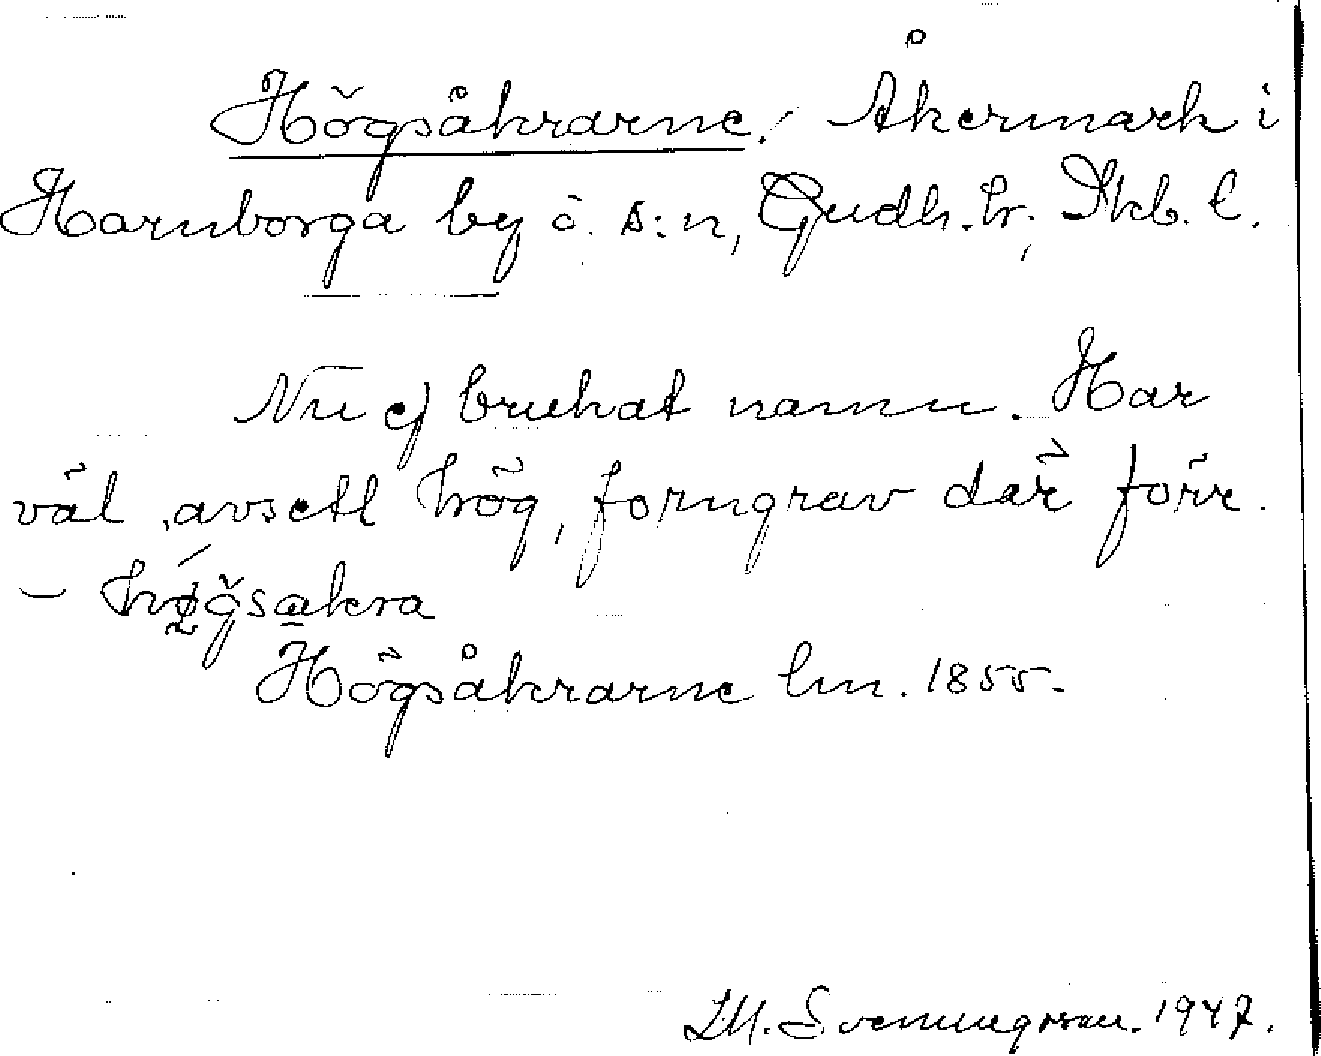 Högsåkrarne. Åkermark i
Hornborga by o. s:n, Gudh. hr, Skb. l.
Nu ej brukat namn. Har
väl avsett hög, forngrav där förr.
Högsåkrarne lm. 1855.
M. Svenungsson. 1947.